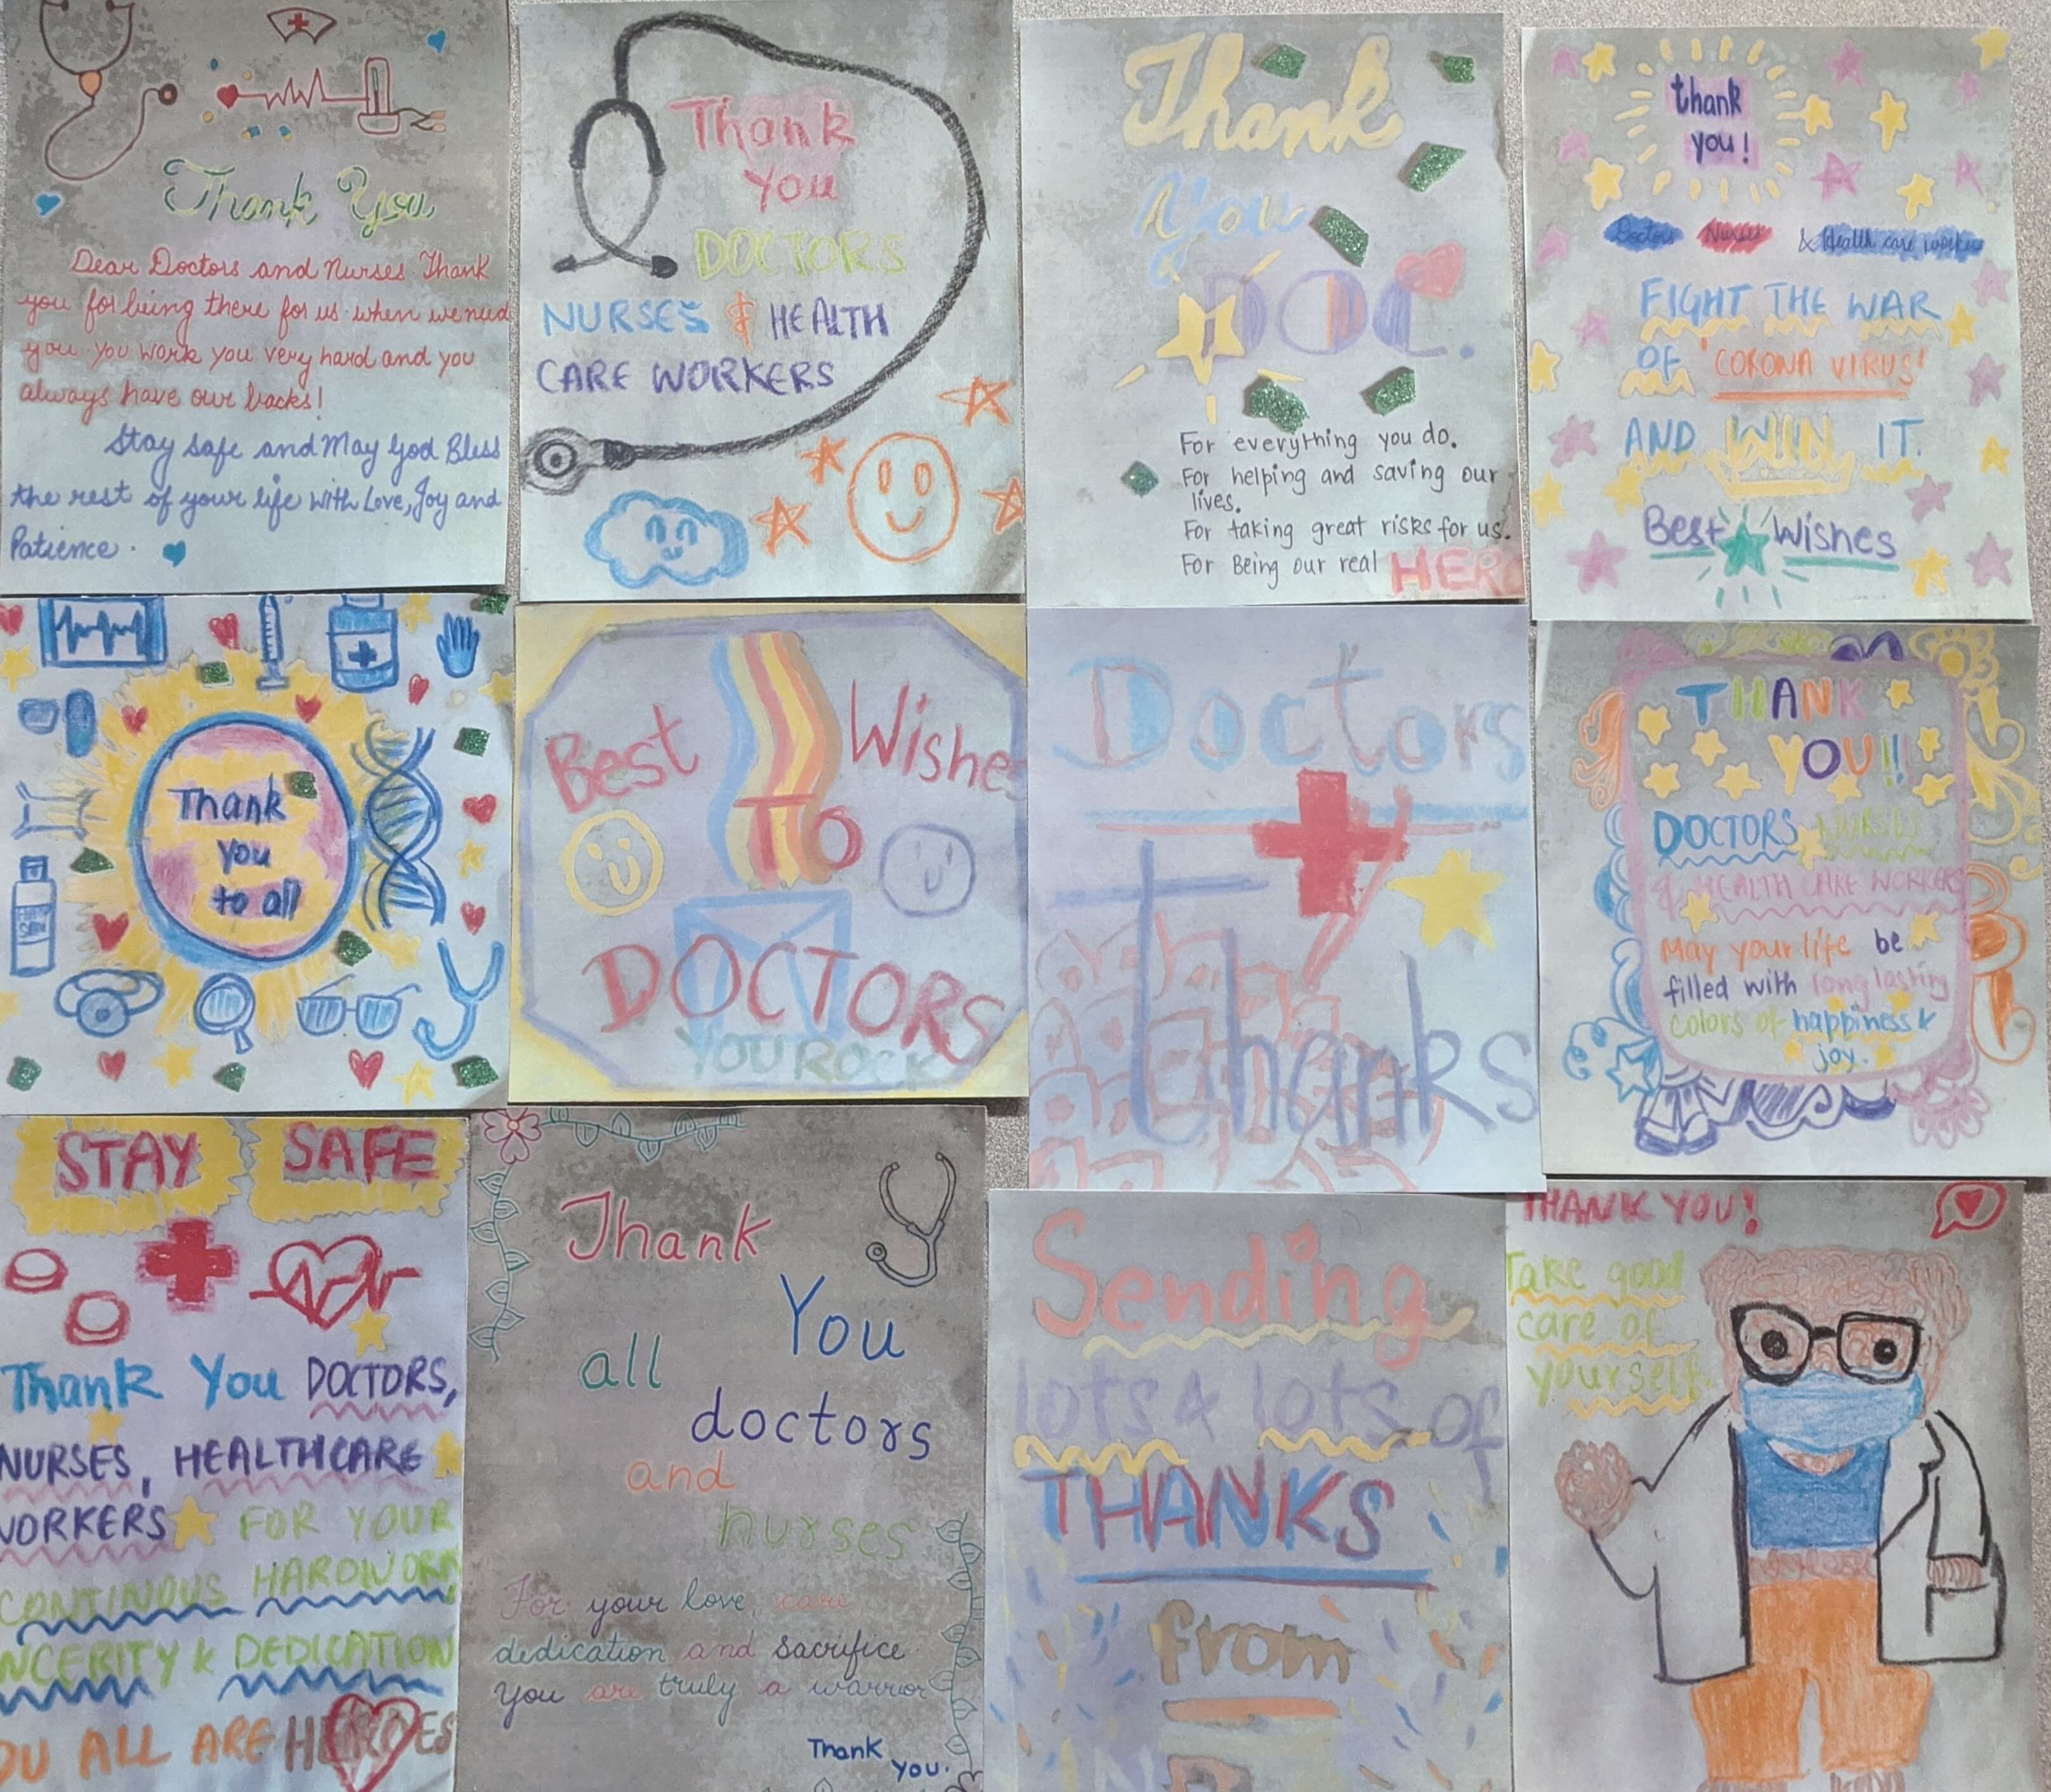 Thank You
Dear Doctors and Nurses Thank
you for being there for us when we need
you. you work you very hard and you
always have our backs!
Stay safe and May God Bless
the rest of your life with Love, Joy and
Patience.
Thank
You
DOCTORS
NURSES & HEALTH
CARE WORKERS
Thank
You
DOC.
For everything you do.
For helping and saving our
lives.
For taking great risks for us.
For Being our real HERO
thank
you!
Doctors Nurses & Health care workers
FIGHT THE WAR
OF 'CORONA VIRUS'
AND WIN IT.
Best Wishes
Thank
you
to all
Best Wishes
TO
DOCTORS
YOU ROCK
Doctors
Thanks
THANK
YOU!!
DOCTORS NURSES
& HEALTH CARE WORKERS
May your life be
filled with long lasting
colors of happiness &
joy.
STAY SAFE
Thank You DOCTORS,
NURSES, HEALTHCARE
WORKERS FOR YOUR
CONTINOUS HARDWORK
NCERITY & DEDICATION
OU ALL ARE HEROES
Thank
You
all
doctors
and
nurses
For your love, care,
dedication and sacrifice
you are truly a warrior
Thank
you.
Sending
lots & lots of
THANKS
from
THANK YOU!
Take good
care of
yourself.